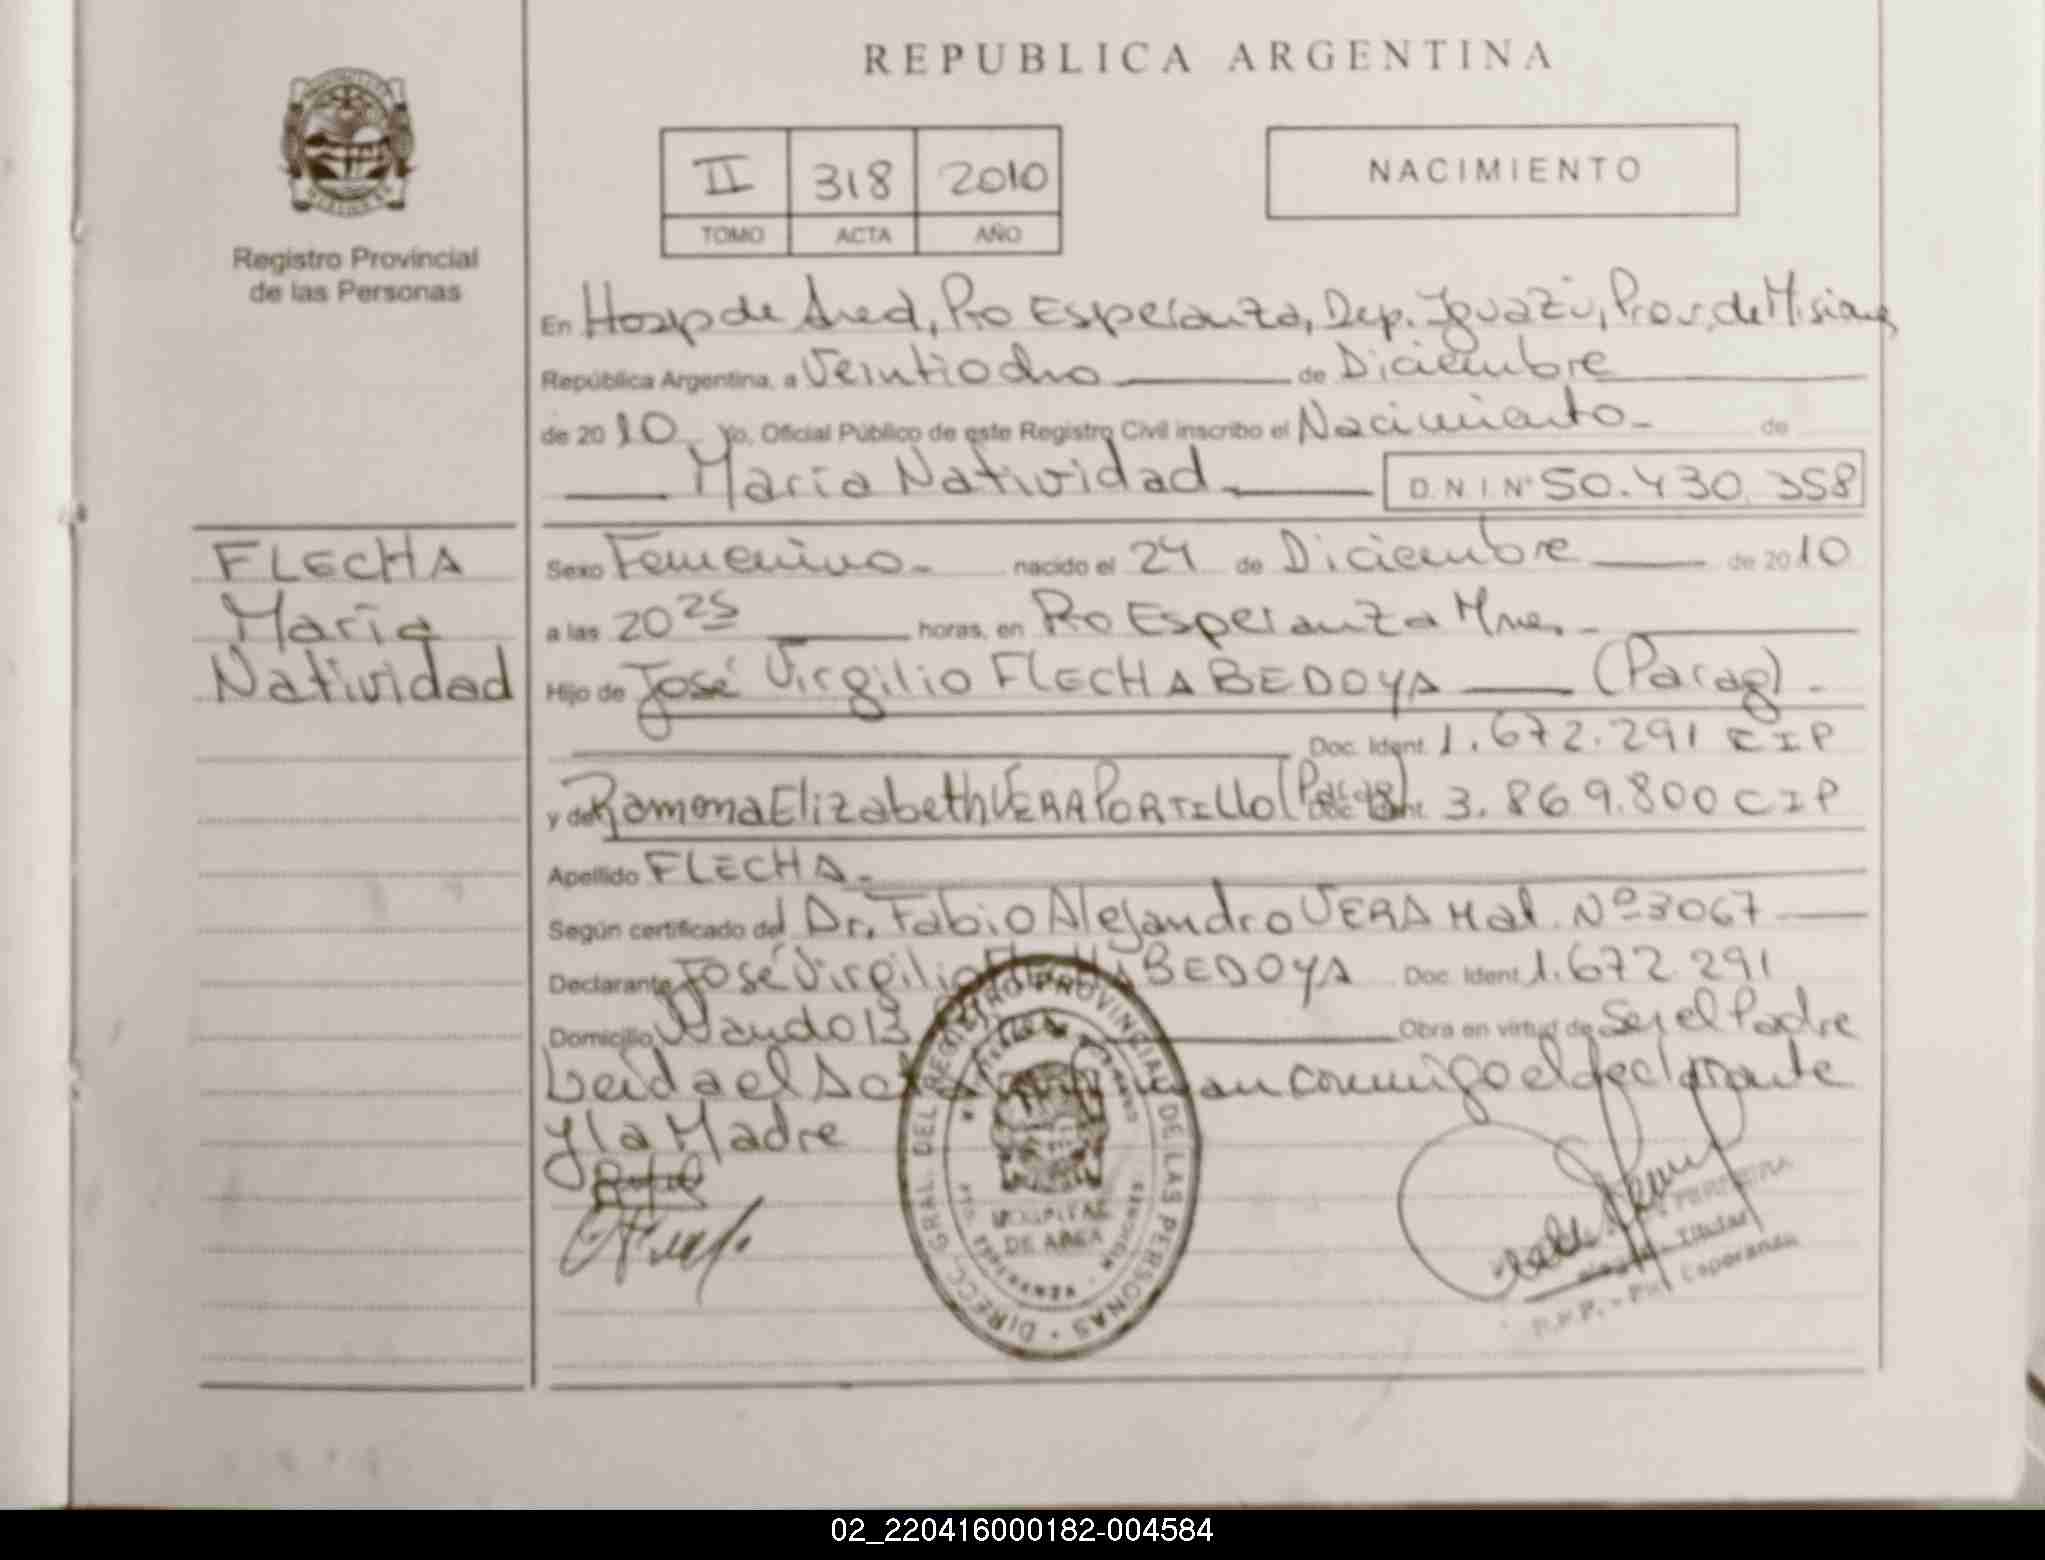 REPUBLICA ARGENTINA
II 318 2010
TOMO ACTA AÑO
NACIMIENTO
Registro Provincial
de las Personas
FLECHA
María
Natividad
En Hosp de Area, Pto Esperanza, Dep. Iguazú, Prov. de Misiones
República Argentina, a Veintiocho de Diciembre
de 2010 Yo, Oficial Público de este Registro Civil inscribo el Nacimiento - de
María Natividad D.N.I. Nº 50.430.358
Sexo Femenino - nacido el 24 de Diciembre de 2010
a las 20 25 horas, en Pto Esperanza Mnes. -
Hijo de José Virgilio FLECHA BEDOYA (Parag) -
Doc. Ident. 1.672.291 CIP
y de Ramona Elizabeth VERA PORTILLO (Parag) Doc. Ident. 3.869.800 CIP
Apellido FLECHA -
Según certificado del Dr. Fabio Alejandro VERA Mat. Nº 3067
Declarante José Virgilio FLECHA BEDOYA Doc. Ident. 1.672.291
Domicilio Wanda Obra en virtud de Ser el Padre
Leida el conmigo el declarante
y la Madre
DIRECC. GRAL. DEL REGISTRO PROVINCIAL DE LAS PERSONAS
HOSPITAL
DE AREA
PERREIRA
Titular
R.P.P. - Pto. Esperanza
02_220416000182-004584